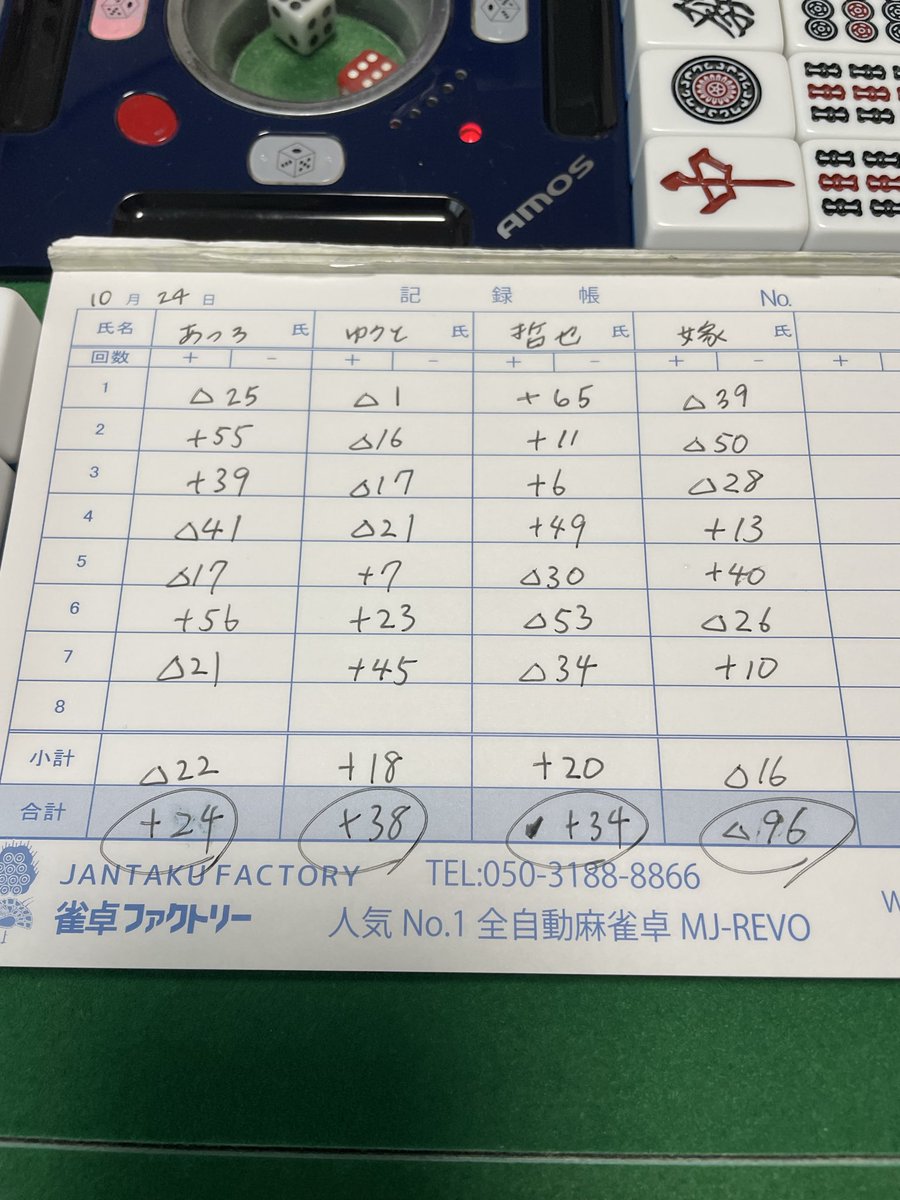 AMOS
10月 24日 記録帳 No.
氏名 あつろ 氏 ゆうと 氏 哲也 氏 嫁 氏
回数 + − + − + − + − +
1 △25 △1 +65 △39
2 +55 △16 +11 △50
3 +39 △17 +6 △28
4 △41 △21 +49 +13
5 △17 +7 △30 +40
6 +56 +23 △53 △26
7 △21 +45 △34 +10
8
小計 △22 +18 +20 △16
合計 +24 +38 +34 △96
JANTAKU FACTORY TEL:050-3188-8866
雀卓ファクトリー 人気 No.1 全自動麻雀卓 MJ-REVO W